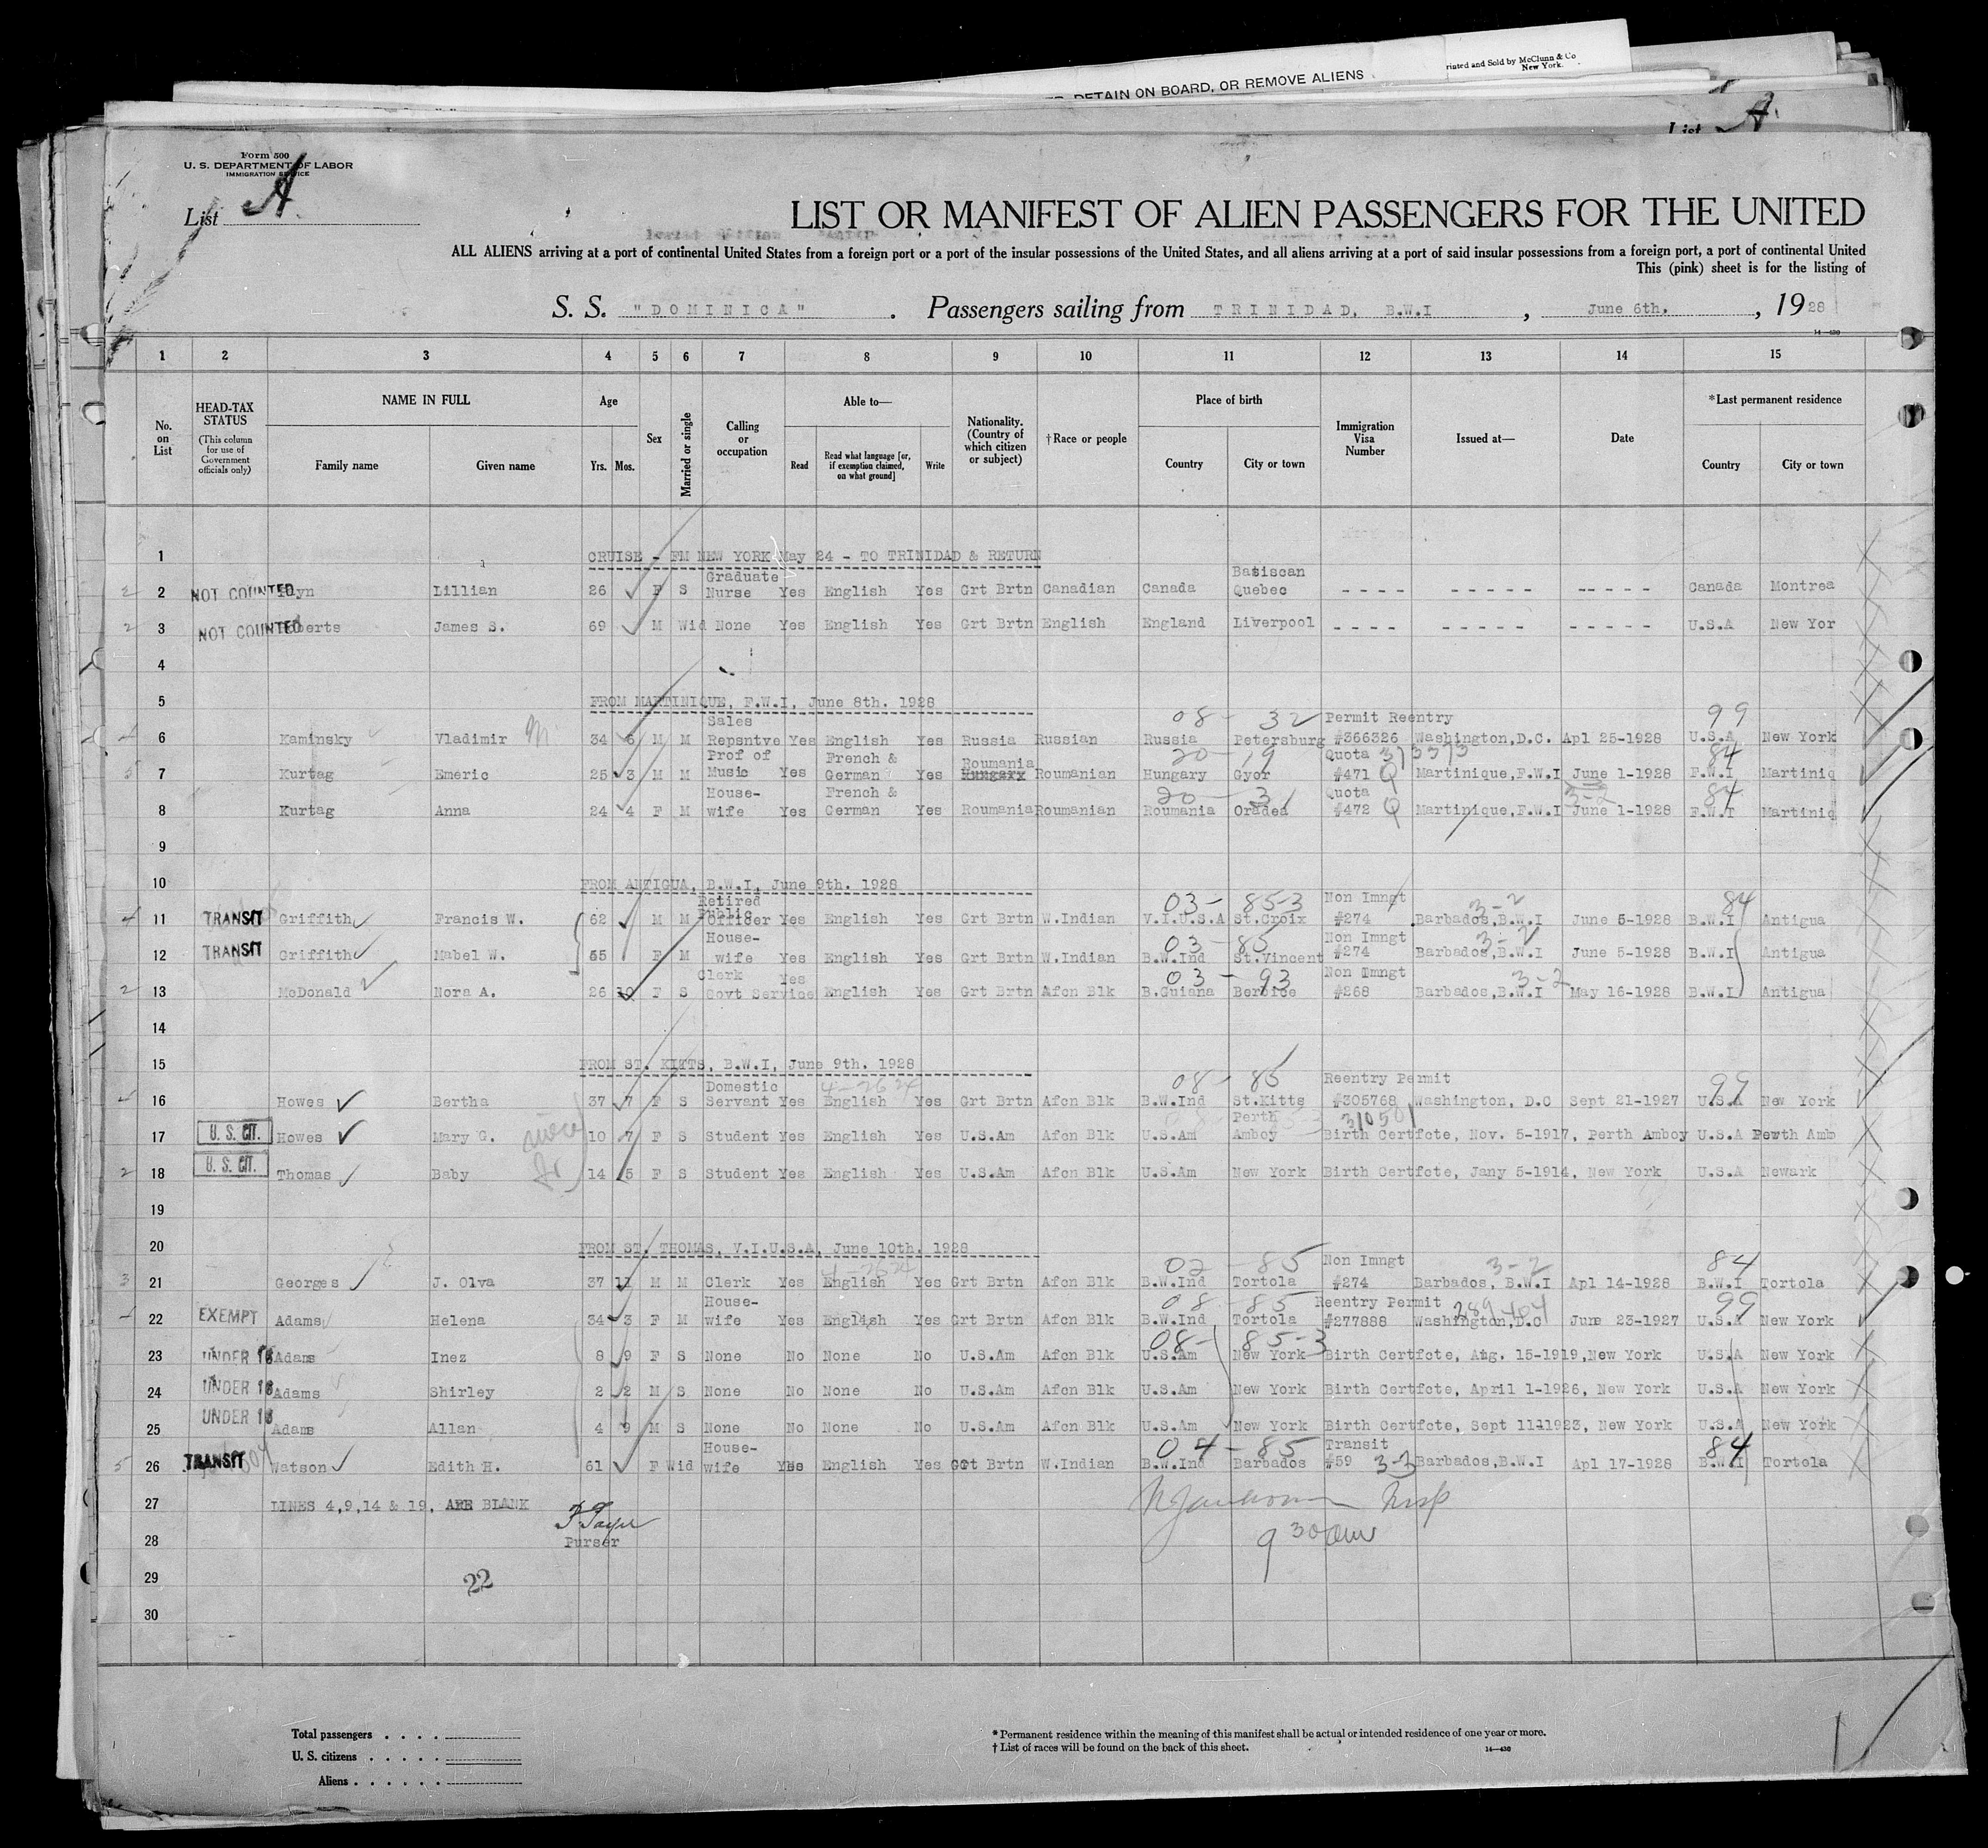 rinted and Sold by McClunn & Co
New York.
DETAIN ON BOARD, OR REMOVE ALIENS
List A
Form 500
U. S. DEPARTMENT OF LABOR
IMMIGRATION SERVICE
List A.
LIST OR MANIFEST OF ALIEN PASSENGERS FOR THE UNITED
ALL ALIENS arriving at a port of continental United States from a foreign port or a port of the insular possessions of the United States, and all aliens arriving at a port of said insular possessions from a foreign port, a port of continental United
This (pink) sheet is for the listing of
S. S. "DOMINICA". Passengers sailing from TRINIDAD, B.W.I, June 6th., 1928
14—430
1 2 3 4 5 6 7 8 9 10 11 12 13 14 15
No. on List HEAD-TAX STATUS (This column for use of Government officials only) NAME IN FULL Family name Given name Age Yrs. Mos. Sex Married or single Calling or occupation Able to— Read Read what language [or, if exemption claimed, on what ground] Write Nationality. (Country of which citizen or subject) †Race or people Place of birth Country City or town Immigration Visa Number Issued at— Date *Last permanent residence Country City or town
1 CRUISE - FM NEW YORK May 24 - TO TRINIDAD & RETURN
Graduate Batiscan
2 2 NOT COUNTED Lillian 26 F S Nurse Yes English Yes Grt Brtn Canadian Canada Quebec ---- ----- ----- Canada Montrea
2 3 NOT COUNTED James S. 69 M Wid None Yes English Yes Grt Brtn English England Liverpool ---- ----- ----- U.S.A New Yor
4
5 FROM MARTINIQUE, F.W.I, June 8th. 1928
Sales 08 - 32 Permit Reentry 99
6 Kaminsky Vladimir M 34 6 M M Repsntve Yes English Yes Russia Russian Russia Petersburg #366326 Washington,D.C. Apl 25-1928 U.S.A New York
Prof of French & Roumania 20 - 19 Quota 373373 84
5 7 Kurtag Emeric 25 3 M M Music Yes German Yes Hungary Roumanian Hungary Gyor #471 Q Martinique,F.W.I June 1-1928 F.W.I Martiniq
House- French & 20 - 31 Quota 3-2 84
8 Kurtag Anna 24 4 F M wife Yes German Yes Roumania Roumanian Roumania Oradea #472 Q Martinique,F.W.I June 1-1928 F.W.I Martiniq
9
10 FROM ANTIGUA, B.W.I, June 9th. 1928
Retired Public 03 - 85-3 Non Immgt 3-2 84
4 11 TRANSIT Griffith Francis W. 62 M M Officer Yes English Yes Grt Brtn W.Indian V.I.U.S.A St.Croix #274 Barbados,B.W.I June 5-1928 B.W.I Antigua
House- 03 - 85 Non Immgt 3-2
12 TRANSIT Griffith Mabel W. 55 F M wife Yes English Yes Grt Brtn W.Indian B.W.Ind St.Vincent #274 Barbados,B.W.I June 5-1928 B.W.I Antigua
Clerk Yes 03 - 93 Non Immgt 3-2
2 13 McDonald Nora A. 26 10 F S Govt Service English Yes Grt Brtn Afcn Blk B.Guiana Berbice #268 Barbados,B.W.I May 16-1928 B.W.I Antigua
14
15 FROM ST. KITTS, B.W.I, June 9th. 1928
Domestic 08 - 85 Reentry Permit 99
16 Howes Bertha 37 7 F S Servant Yes English Yes Grt Brtn Afcn Blk B.W.Ind St.Kitts #305768 Washington, D.C Sept 21-1927 U.S.A New York
Perth 310501
17 U. S. CIT. Howes Mary G. 10 7 F S Student Yes English Yes U.S.Am Afcn Blk U.S.Am Amboy Birth Certfcte, Nov. 5-1917, Perth Amboy U.S.A Perth Amb
2 18 U. S. CIT. Thomas Baby 14 5 F S Student Yes English Yes U.S.Am Afcn Blk U.S.Am New York Birth Certfcte, Jany 5-1914, New York U.S.A Newark
19
20 FROM ST. THOMAS, V.I.U.S.A, June 10th. 1928
02 - 85 Non Immgt 3-2 84
3 21 Georges J. Olva 37 11 M M Clerk Yes English Yes Grt Brtn Afcn Blk B.W.Ind Tortola #274 Barbados, B.W.I Apl 14-1928 B.W.I Tortola
House- 08 - 85 Reentry Permit 289404 99
22 EXEMPT Adams Helena 34 3 F M wife Yes English Yes Grt Brtn Afcn Blk B.W.Ind Tortola #277888 Washington,D.C June 23-1927 U.S.A New York
08 - 85-3
23 UNDER 16 Adams Inez 8 9 F S None No None No U.S.Am Afcn Blk U.S.Am New York Birth Certfcte, Aug. 15-1919,New York U.S.A New York
24 UNDER 16 Adams Shirley 2 2 M S None No None No U.S.Am Afcn Blk U.S.Am New York Birth Certfcte, April 1-1926, New York U.S.A New York
25 UNDER 16 Adams Allan 4 9 M S None No None No U.S.Am Afcn Blk U.S.Am New York Birth Certfcte, Sept 11-1923, New York U.S.A New York
House- 04 - 85 Transit 84
5 26 TRANSIT Watson Edith H. 61 F Wid wife Yes English Yes Grt Brtn W.Indian B.W.Ind Barbados #59 3-3 Barbados,B.W.I Apl 17-1928 B.W.I Tortola
27 LINES 4,9,14 & 19, ARE BLANK
28 Purser 9 30 am
29 22
30
Total passengers . . . .
U. S. citizens . . . . .
Aliens . . . . . .
* Permanent residence within the meaning of this manifest shall be actual or intended residence of one year or more.
† List of races will be found on the back of this sheet.
14—430